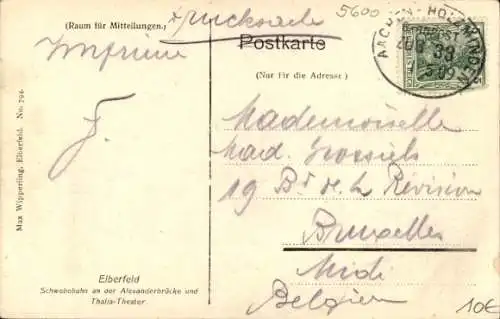 (Raum für Mitteilungen.)
Drucksache
5600
Imprimé
Postkarte
(Nur für die Adresse)
AACHEN - HOLZMINDEN
BAHNPOST
ZUG 33
5 09
Mademoiselle
Mad.
19 Bd de la Révision
Bruxelles
Midi
Belgien
Elberfeld
Schwebebahn an der Alexanderbrücke und
Thalia-Theater
Max Wipperling, Elberfeld. No. 794
10€